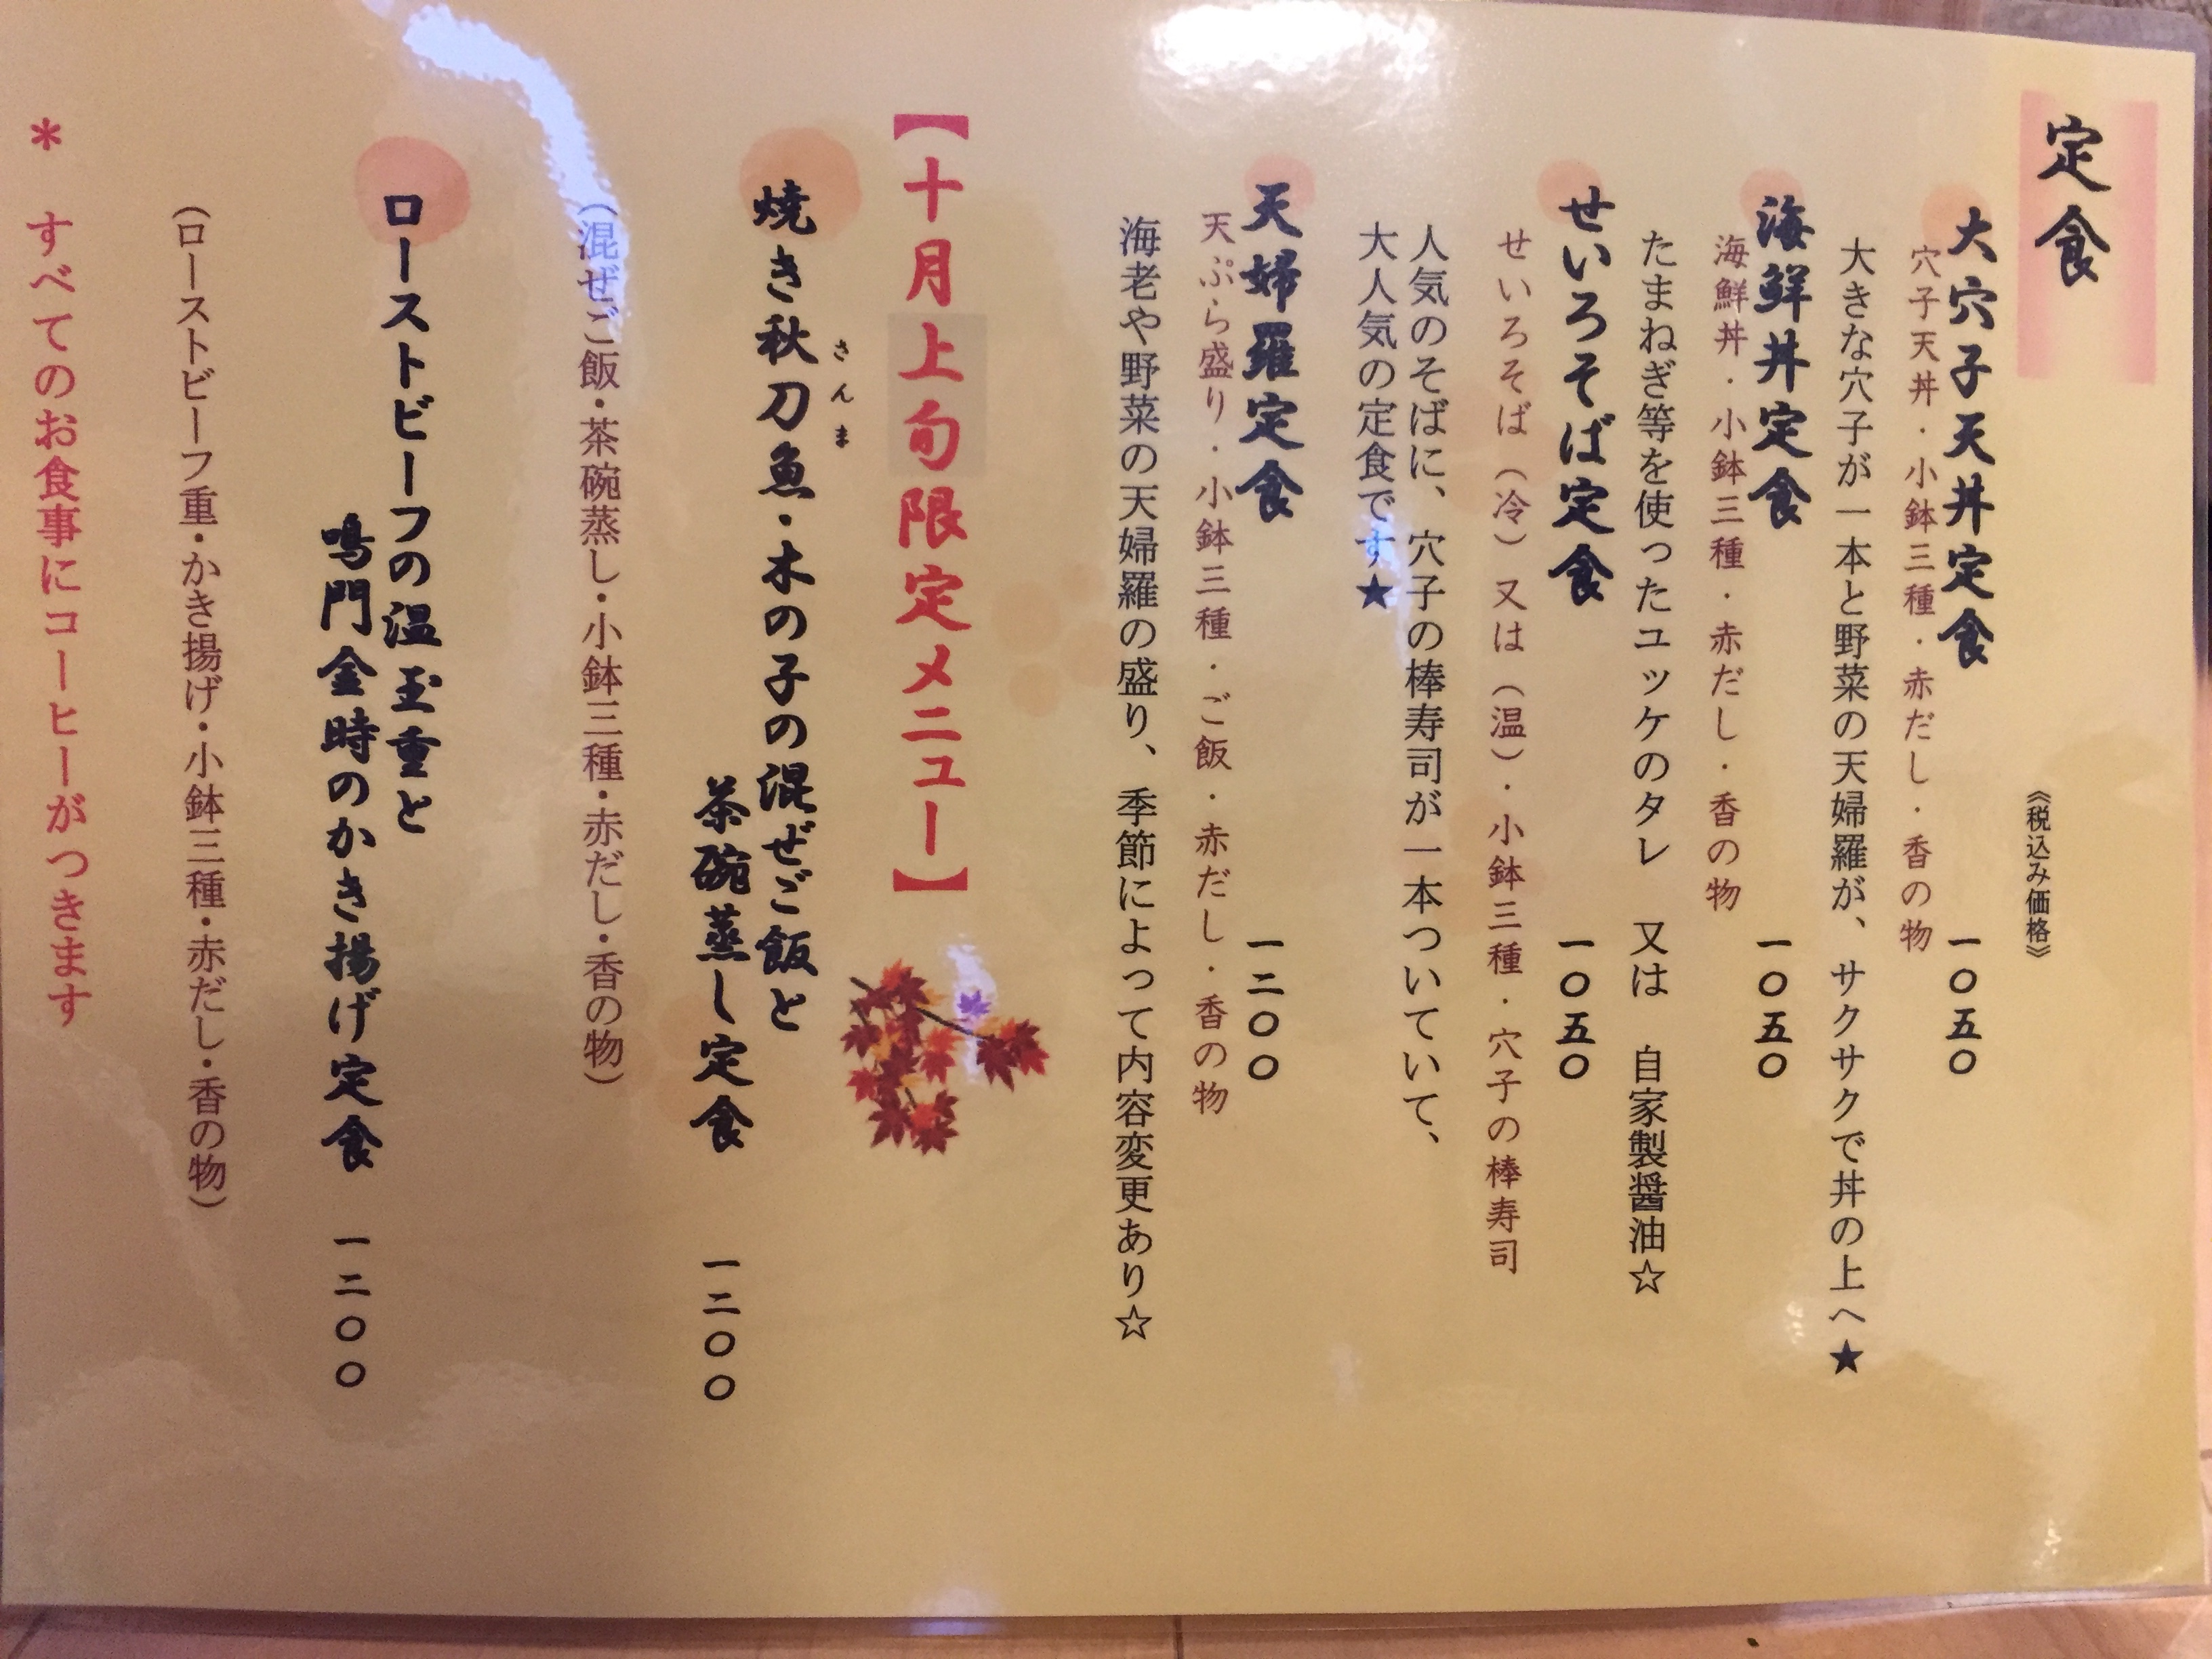 定食
《税込み価格》
大穴子天丼定食 一〇五〇
穴子天丼・小鉢三種・赤だし・香の物
大きな穴子が一本と野菜の天婦羅が、サクサクで丼の上へ★
海鮮丼定食 一〇五〇
海鮮丼・小鉢三種・赤だし・香の物
たまねぎ等を使ったユッケのタレ 又は 自家製醤油☆
せいろそば定食 一〇五〇
せいろそば（冷）又は（温）・小鉢三種・穴子の棒寿司
人気のそばに、穴子の棒寿司が一本ついていて、
大人気の定食です★
天婦羅定食 一二〇〇
天ぷら盛り・小鉢三種・ご飯・赤だし・香の物
海老や野菜の天婦羅の盛り、季節によって内容変更あり☆
【十月上旬限定メニュー】
さんま
焼き秋刀魚・木の子の混ぜご飯と
茶碗蒸し定食 一二〇〇
（混ぜご飯・茶碗蒸し・小鉢三種・赤だし・香の物）
ローストビーフの温玉重と
鳴門金時のかき揚げ定食 一二〇〇
（ローストビーフ重・かき揚げ・小鉢三種・赤だし・香の物）
＊ すべてのお食事にコーヒーがつきます